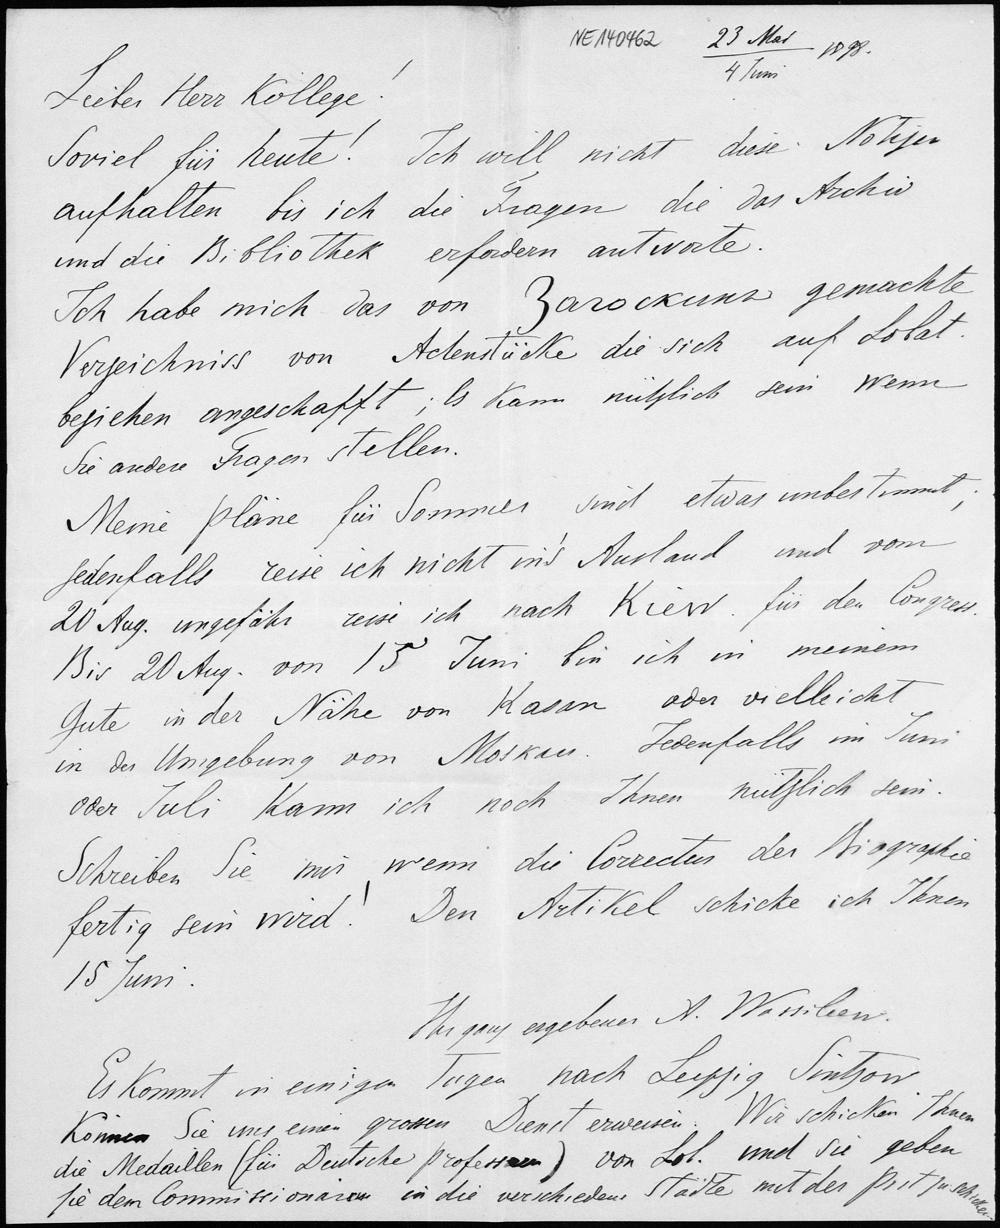 NE140462
23 Mai
4 Juni 1898.
Lieber Herr Kollege!
Soviel für heute! Ich will nicht diese Notizen
aufhalten bis ich die Fragen die das Archiv
und die Bibliothek erfordern antworte.
Ich habe mich das von gemachte
Verzeichniss von Actenstücke die sich auf Lobat.
beziehen angeschafft; Es kann nützlich sein wenn
Sie andere Fragen stellen.
Meine Pläne für Sommer sind etwas unbestimmt;
jedenfalls reise ich nicht in's Ausland und vom
20 Aug. ungefähr reise ich nach Kiew für den Congress.
Bis 20 Aug. von 15 Juni bin ich in meinem
Gute in der Nähe von Kasan oder vielleicht
in der Umgebung von Moskau. Jedenfalls im Juni
oder Juli kann ich noch Ihnen nützlich sein.
Schreiben Sie mir wenn die Correctur der Biographie
fertig sein wird! Den Artikel schicke ich Ihnen
15 Juni.
Ihr ganz ergebener A. Wassiliew.
Es kommt in einigen Tagen nach Leipzig Sintsow
Können Sie uns einen grossen Dienst erweisen. Wir schicken Ihnen
die Medaillen (für Deutsche Professoren) von Lob. und Sie geben
sie dem Commissionären in die verschiedene Städte mit der Post zu schicken